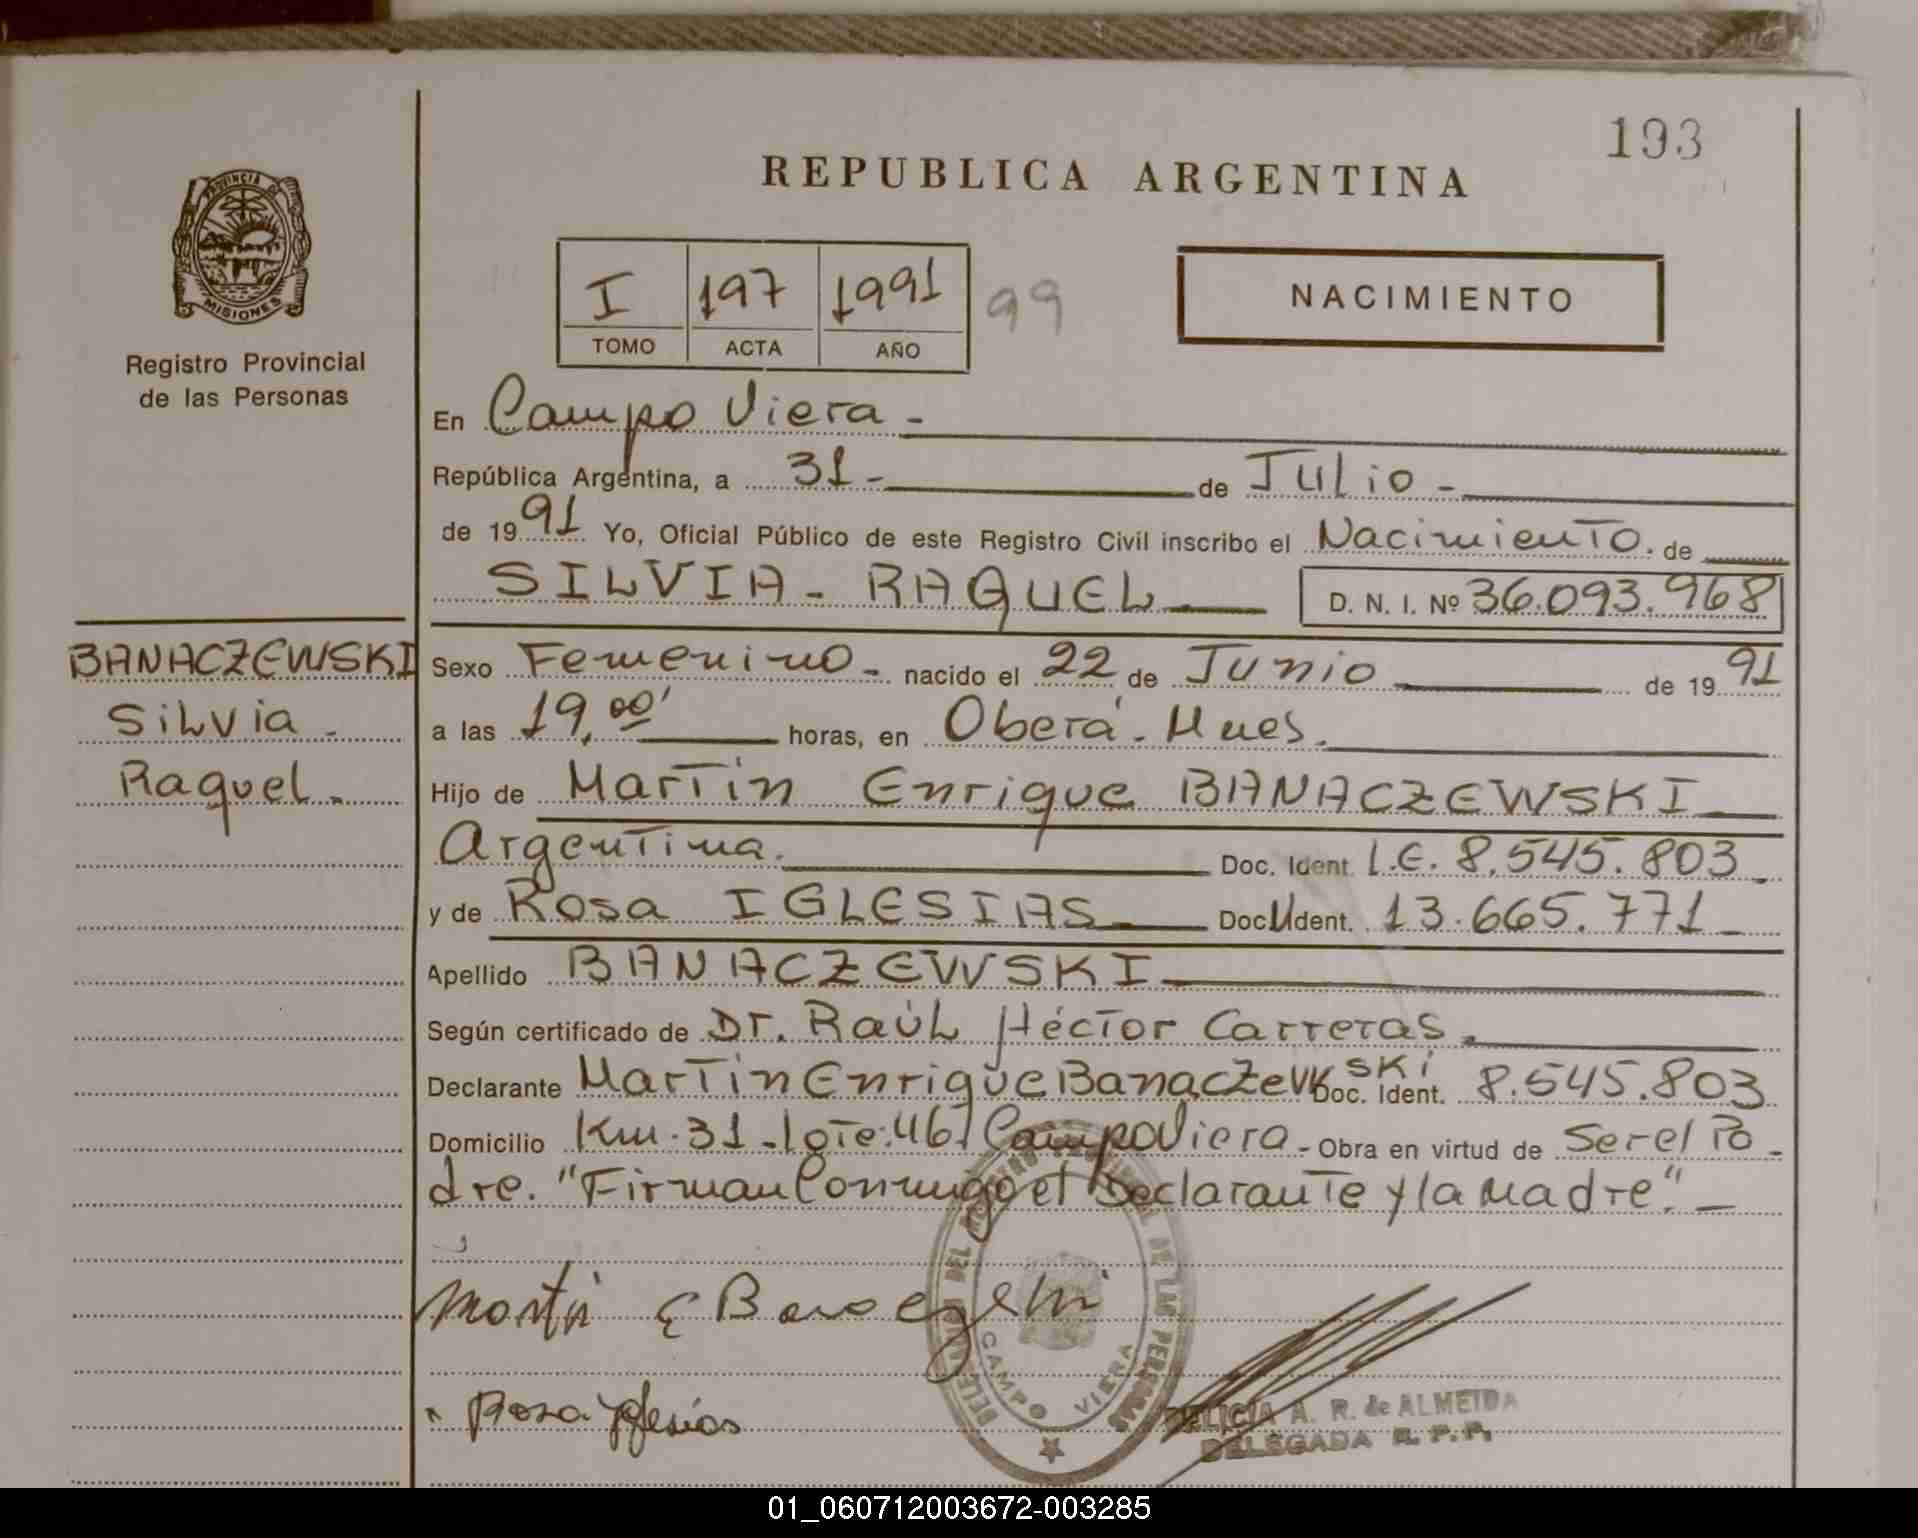 193
REPUBLICA ARGENTINA
PROVINCIA DE
MISIONES
Registro Provincial
de las Personas
I 197 1991 99
TOMO ACTA AÑO
NACIMIENTO
En Campo Viera -
República Argentina, a 31 - de Julio -
de 1991 Yo, Oficial Público de este Registro Civil inscribo el Nacimiento. de
SILVIA - RAQUEL D. N. I. Nº 36.093.968
BANACZEWSKI
Silvia -
Raquel -
Sexo Femenino - nacido el 22 de Junio de 1991
a las 19,00' horas, en Oberá - Mnes.
Hijo de Martín Enrique BANACZEWSKI
Argentina. Doc. Ident. L.E. 8.545.803
y de Rosa IGLESIAS Doc. Ident. 13.665.771
Apellido BANACZEWSKI
Según certificado de Dr. Raúl Héctor Carreras.
Declarante Martín Enrique Banaczewski Doc. Ident. 8.545.803
Domicilio Km. 31 - Lote: 46, Campo Viera - Obra en virtud de Ser el Pa-
dre. "Firman Conmigo el Declarante y la Madre". -
Rosa Yglesias
DEL REGISTRO PROVINCIAL DE LAS PERSONAS
CAMPO VIERA
A. R. de ALMEIDA
DELEGADA R. P. P.
01_060712003672-003285